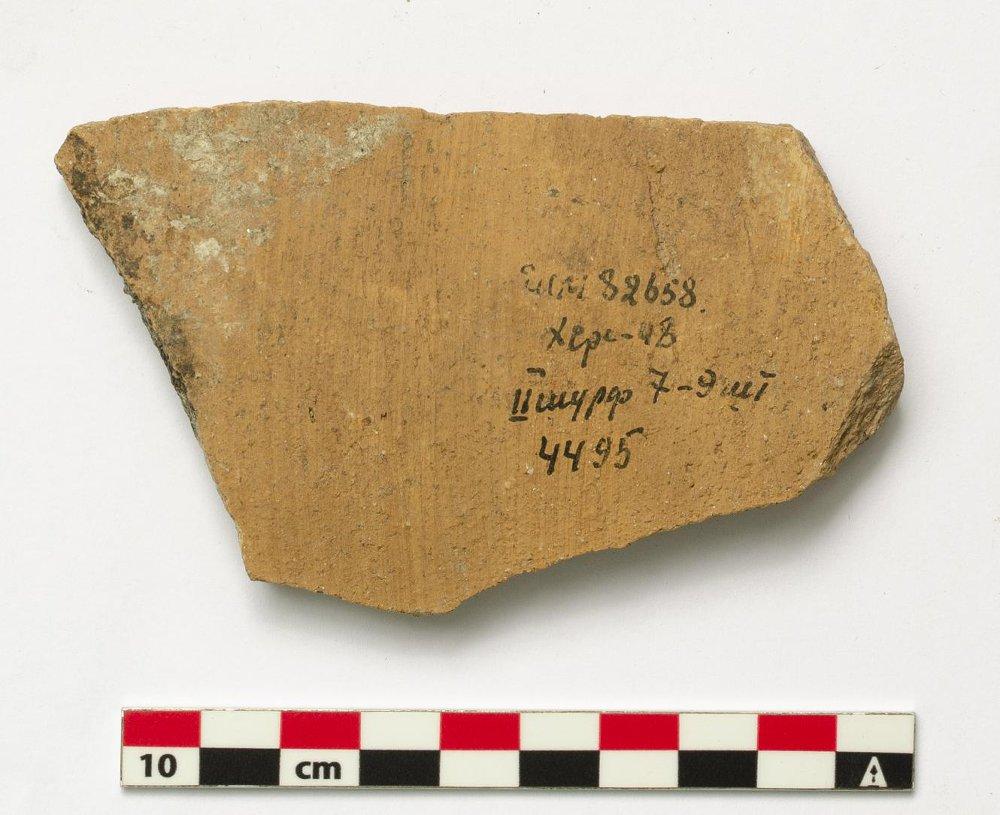 82658.
Херс-48
II шурф 7-9 шт
4495
10 cm
A